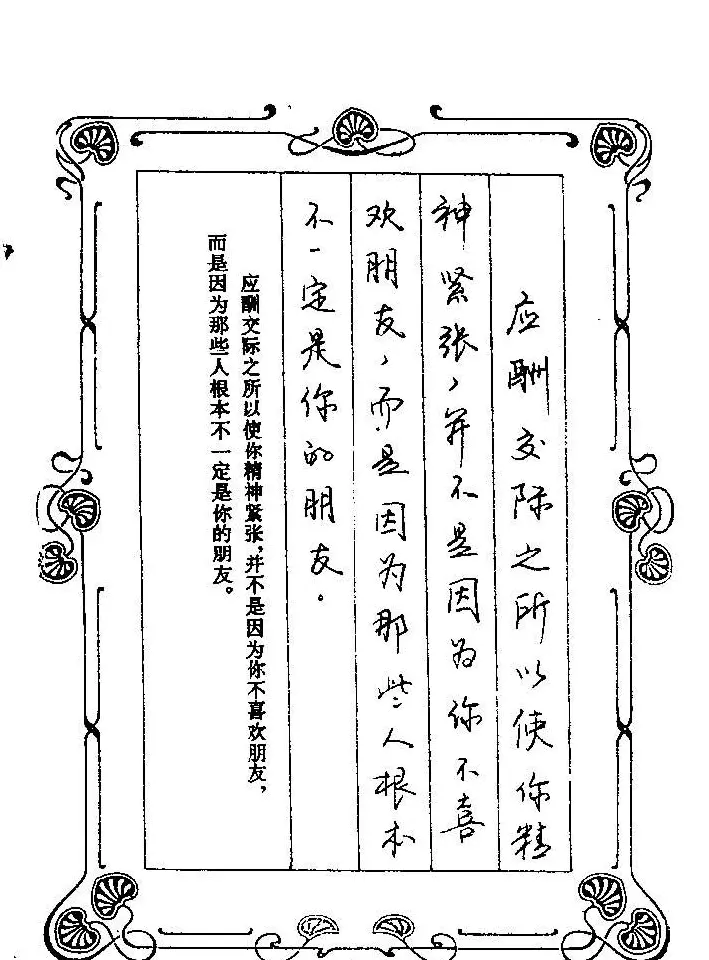 应酬交际之所以使你精
神紧张，并不是因为你不喜
欢朋友，而是因为那些人根本
不一定是你的朋友。
应酬交际之所以使你精神紧张，并不是因为你不喜欢朋友，
而是因为那些人根本不一定是你的朋友。